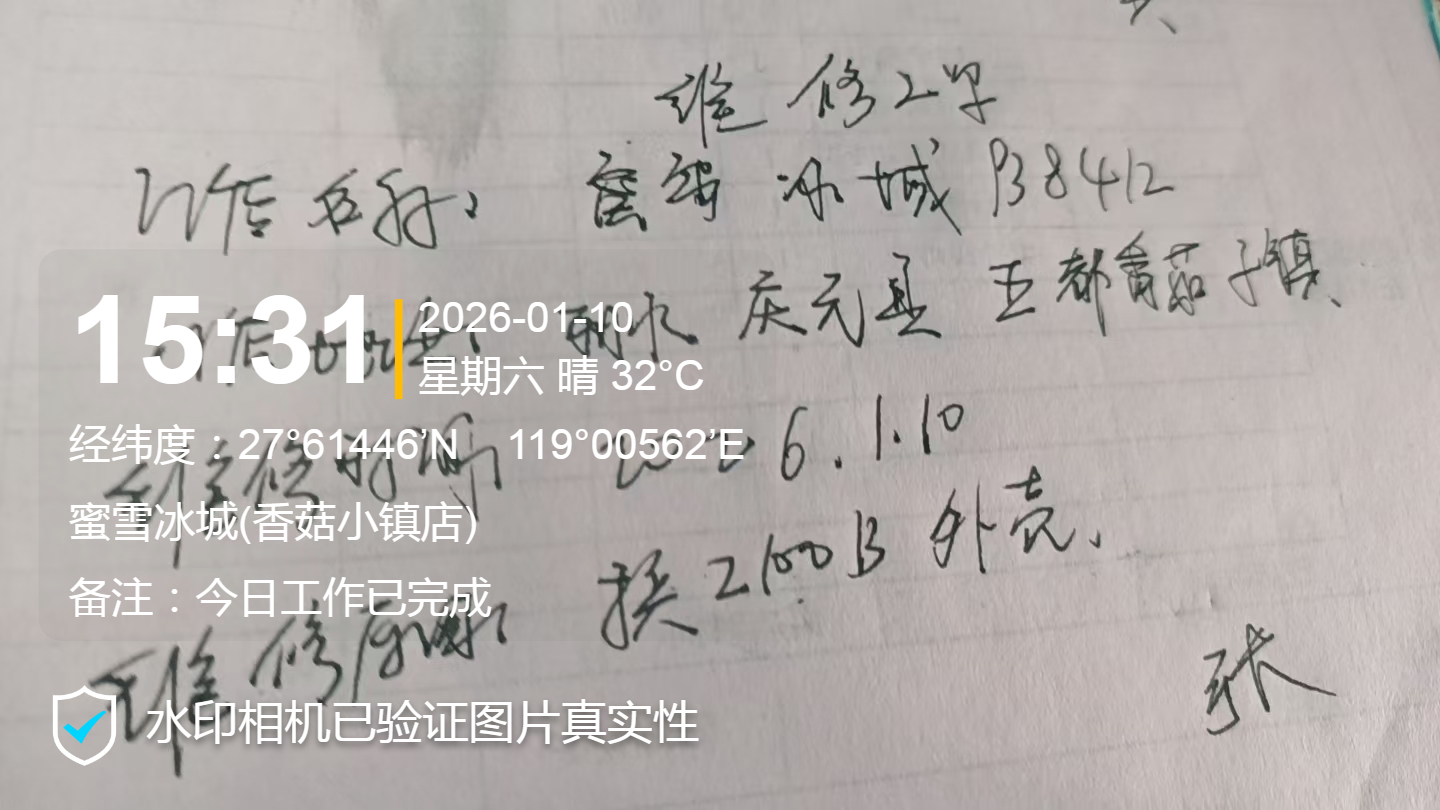 维修工单
工作名称：蜜雪冰城 138412
工作地址：丽水 庆元县 五都香菇子镇、
维修时间 2026.1.10
维修原因：换2100B外壳.
张
15:31
2026-01-10
星期六 晴 32°C
经纬度：27°61446’N 119°00562’E
蜜雪冰城(香菇小镇店)
备注：今日工作已完成
水印相机已验证图片真实性